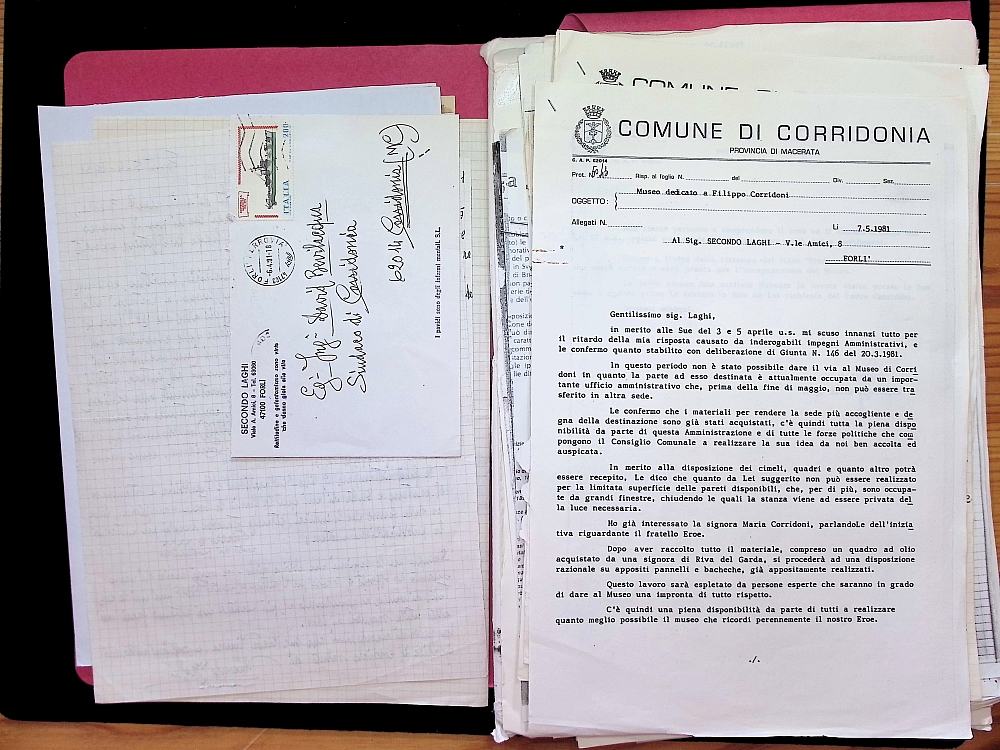 SECONDO LAGHI
Viale A. Amici, 8 - Tel. 63080
47100 FORLÌ
che stesso gioia alla vita
ITALIA 200
FORLI FERROVIA
Eg. Ing. David Bevilacqua
Sindaco di Corridonia
62014 Corridonia (MC)
COMUNE DI
COMUNE DI CORRIDONIA
PROVINCIA DI MACERATA
C. A. P. 62014
Prot. N. Risp. al foglio N. del Div. Sez.
Museo dedicato a Filippo Corridoni
OGGETTO:
Allegati N.
Lì 7.5.1981
Al Sig. SECONDO LAGHI - V.le Amici, 8
FORLI'
Gentilissimo sig. Laghi,
in merito alle Sue del 3 e 5 aprile u.s. mi scuso innanzi tutto per
il ritardo della mia risposta causato da inderogabili impegni Amministrativi, e
le confermo quanto stabilito con deliberazione di Giunta N. 146 del 20.3.1981.
In questo periodo non è stato possibile dare il via al Museo di Corri
doni in quanto la parte ad esso destinata è attualmente occupata da un impor-
tante ufficio amministrativo che, prima della fine di maggio, non può essere tra
sferito in altra sede.
Le confermo che i materiali per rendere la sede più accogliente e de
gna della destinazione sono già stati acquistati, c'è quindi tutta la piena dispo
nibilità da parte di questa Amministrazione e di tutte le forze politiche che com
pongono il Consiglio Comunale a realizzare la sua idea da noi ben accolta ed
auspicata.
In merito alla disposizione dei cimeli, quadri e quanto altro potrà
essere recepito, Le dico che quanto da Lei suggerito non può essere realizzato
per la limitata superficie delle pareti disponibili, che, per di più, sono occupa-
te da grandi finestre, chiudendo le quali la stanza viene ad essere privata del
la luce necessaria.
Ho già interessato la signora Maria Corridoni, parlandoLe dell'inizia
tiva riguardante il fratello Eroe.
Dopo aver raccolto tutto il materiale, compreso un quadro ad olio
acquistato da una signora di Riva del Garda, si procederà ad una disposizione
razionale su appositi pannelli e bacheche, già appositamente realizzati.
Questo lavoro sarà espletato da persone esperte che saranno in grado
di dare al Museo una impronta di tutto rispetto.
C'è quindi una piena disponibilità da parte di tutti a realizzare
quanto meglio possibile il museo che ricordi perennemente il nostro Eroe.
./.